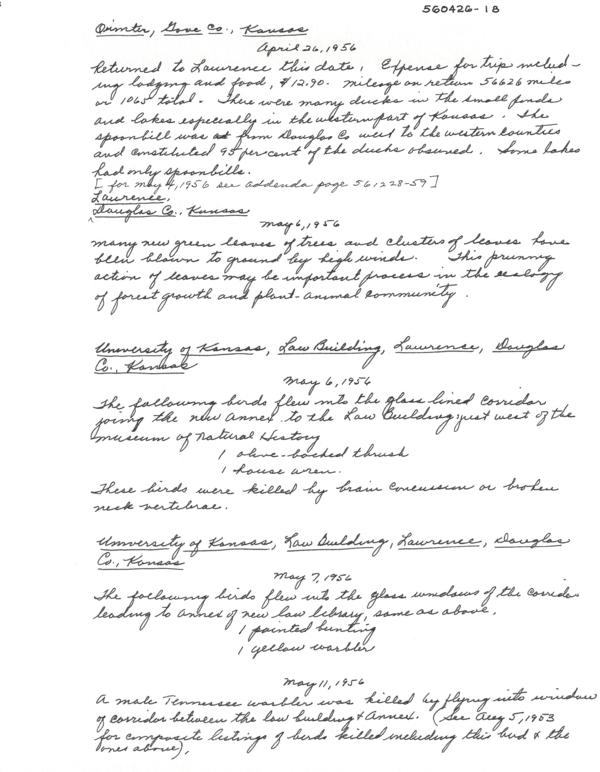 560426-18
Quinter, Gove Co., Kansas
April 26, 1956
Returned to Lawrence this date, Expense for trip includ-
ing lodging and food, $12.90. mileage on return 56626 miles
or 1065 total. There were many ducks in the small ponds
and lakes especially in the western part of Kansas. The
spoonbill was from Douglas Co west to the western counties
and constituted 95 per cent of the ducks observed. Some lakes
had only spoonbills.
[for may 4, 1956 see addenda page 561228-59]
Lawrence,
Douglas Co., Kansas
May 6, 1956
Many new green leaves of trees and clusters of leaves have
been blown to ground by high winds. This pruning
action of leaves may be important process in the ecology
of forest growth and plant-animal community.
University of Kansas, Law Building, Lawrence, Douglas
Co., Kansas
May 6, 1956
The following birds flew into the glass lined corridor
joining the new Annex to the Law Building just west of the
museum of Natural History
1 olive-backed thrush
1 house wren.
These birds were killed by brain concussion or broken
neck vertebrae.
University of Kansas, Law Building, Lawrence, Douglas
Co., Kansas
May 7, 1956
The following birds flew into the glass windows of the corridor
leading to annex of new law library, same as above.
1 painted bunting
1 yellow warbler
May 11, 1956
A male Tennessee warbler was killed by flying into window
of corridor between the law building & Annex. (See Aug 5, 1953
for composite listings of birds killed including this bird & the
ones above).